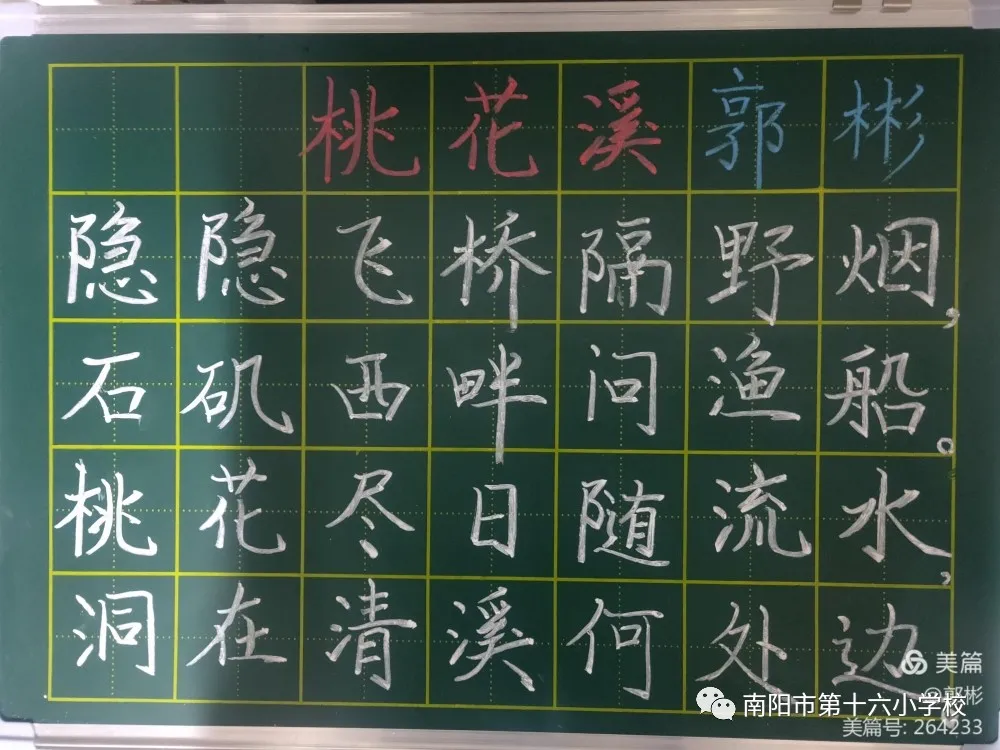 桃花溪 郭彬
隐隐飞桥隔野烟，
石矶西畔问渔船。
桃花尽日随流水，
洞在清溪何处边
美篇
@郭彬
南阳市第十六小学校
美篇号: 264233